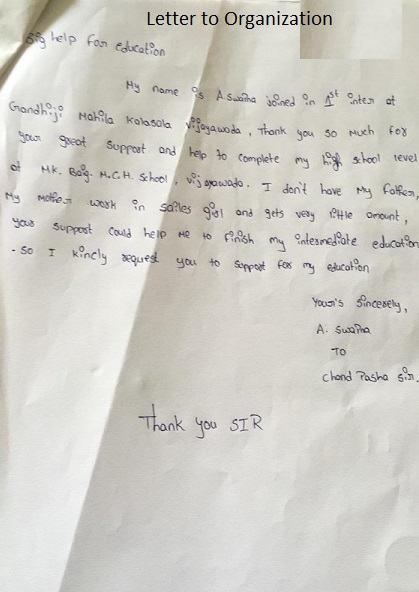 Letter to Organization
Big help for education
My name is A.Swapna joined in 1st inter at
Gandhiji Mahila Kalasala Vijayawada, Thank you so much for
your great support and help to complete my high school level
at M.K. Baig. M.C.H. School, Vijayawada. I don't have My father,
My Mother work in sailes girl and gets very little amount,
your support could help me to finish my intermediate education
- so I kincly request you to support for my education
Your's Sincerely,
A. Swapna
TO
Chand Pasha Sir,
Thank you SIR